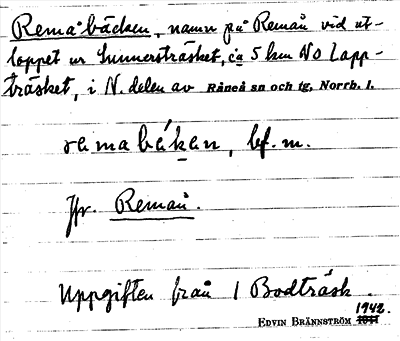 Remabäcken, namn på Remån vid ut-
loppet ur Sunnersträsket, ca 5 km NO Lapp-
träsket, i N. delen av Råneå sn och tg, Norrb. l.
remabäkan, bf. m.
Jfr. Remån.
Uppgiften från 1 Bodträsk.
EDVIN BRÄNNSTRÖM 1942.